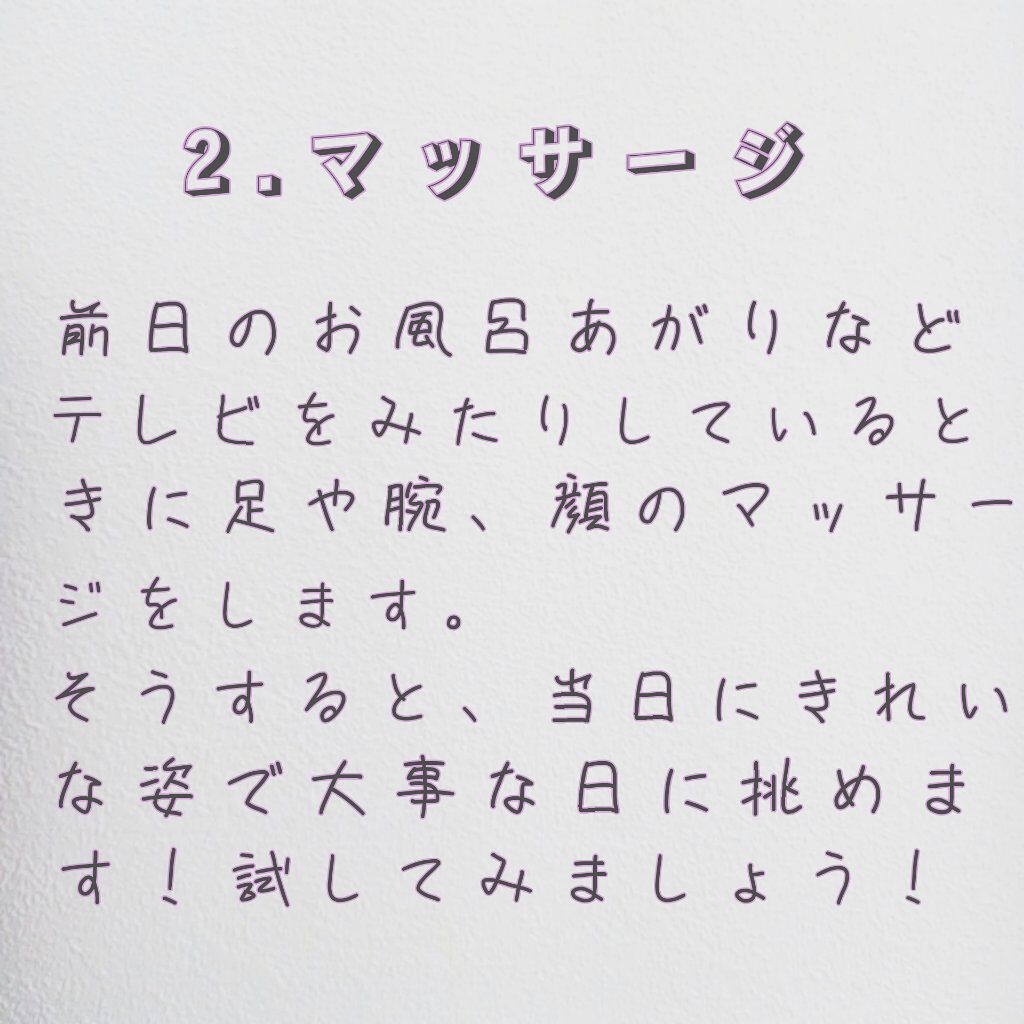 2.マッサージ
前日のお風呂あがりなど
テレビをみたりしていると
きに足や腕、顔のマッサー
ジをします。
そうすると、当日にきれい
な姿で大事な日に挑めま
す！試してみましょう！